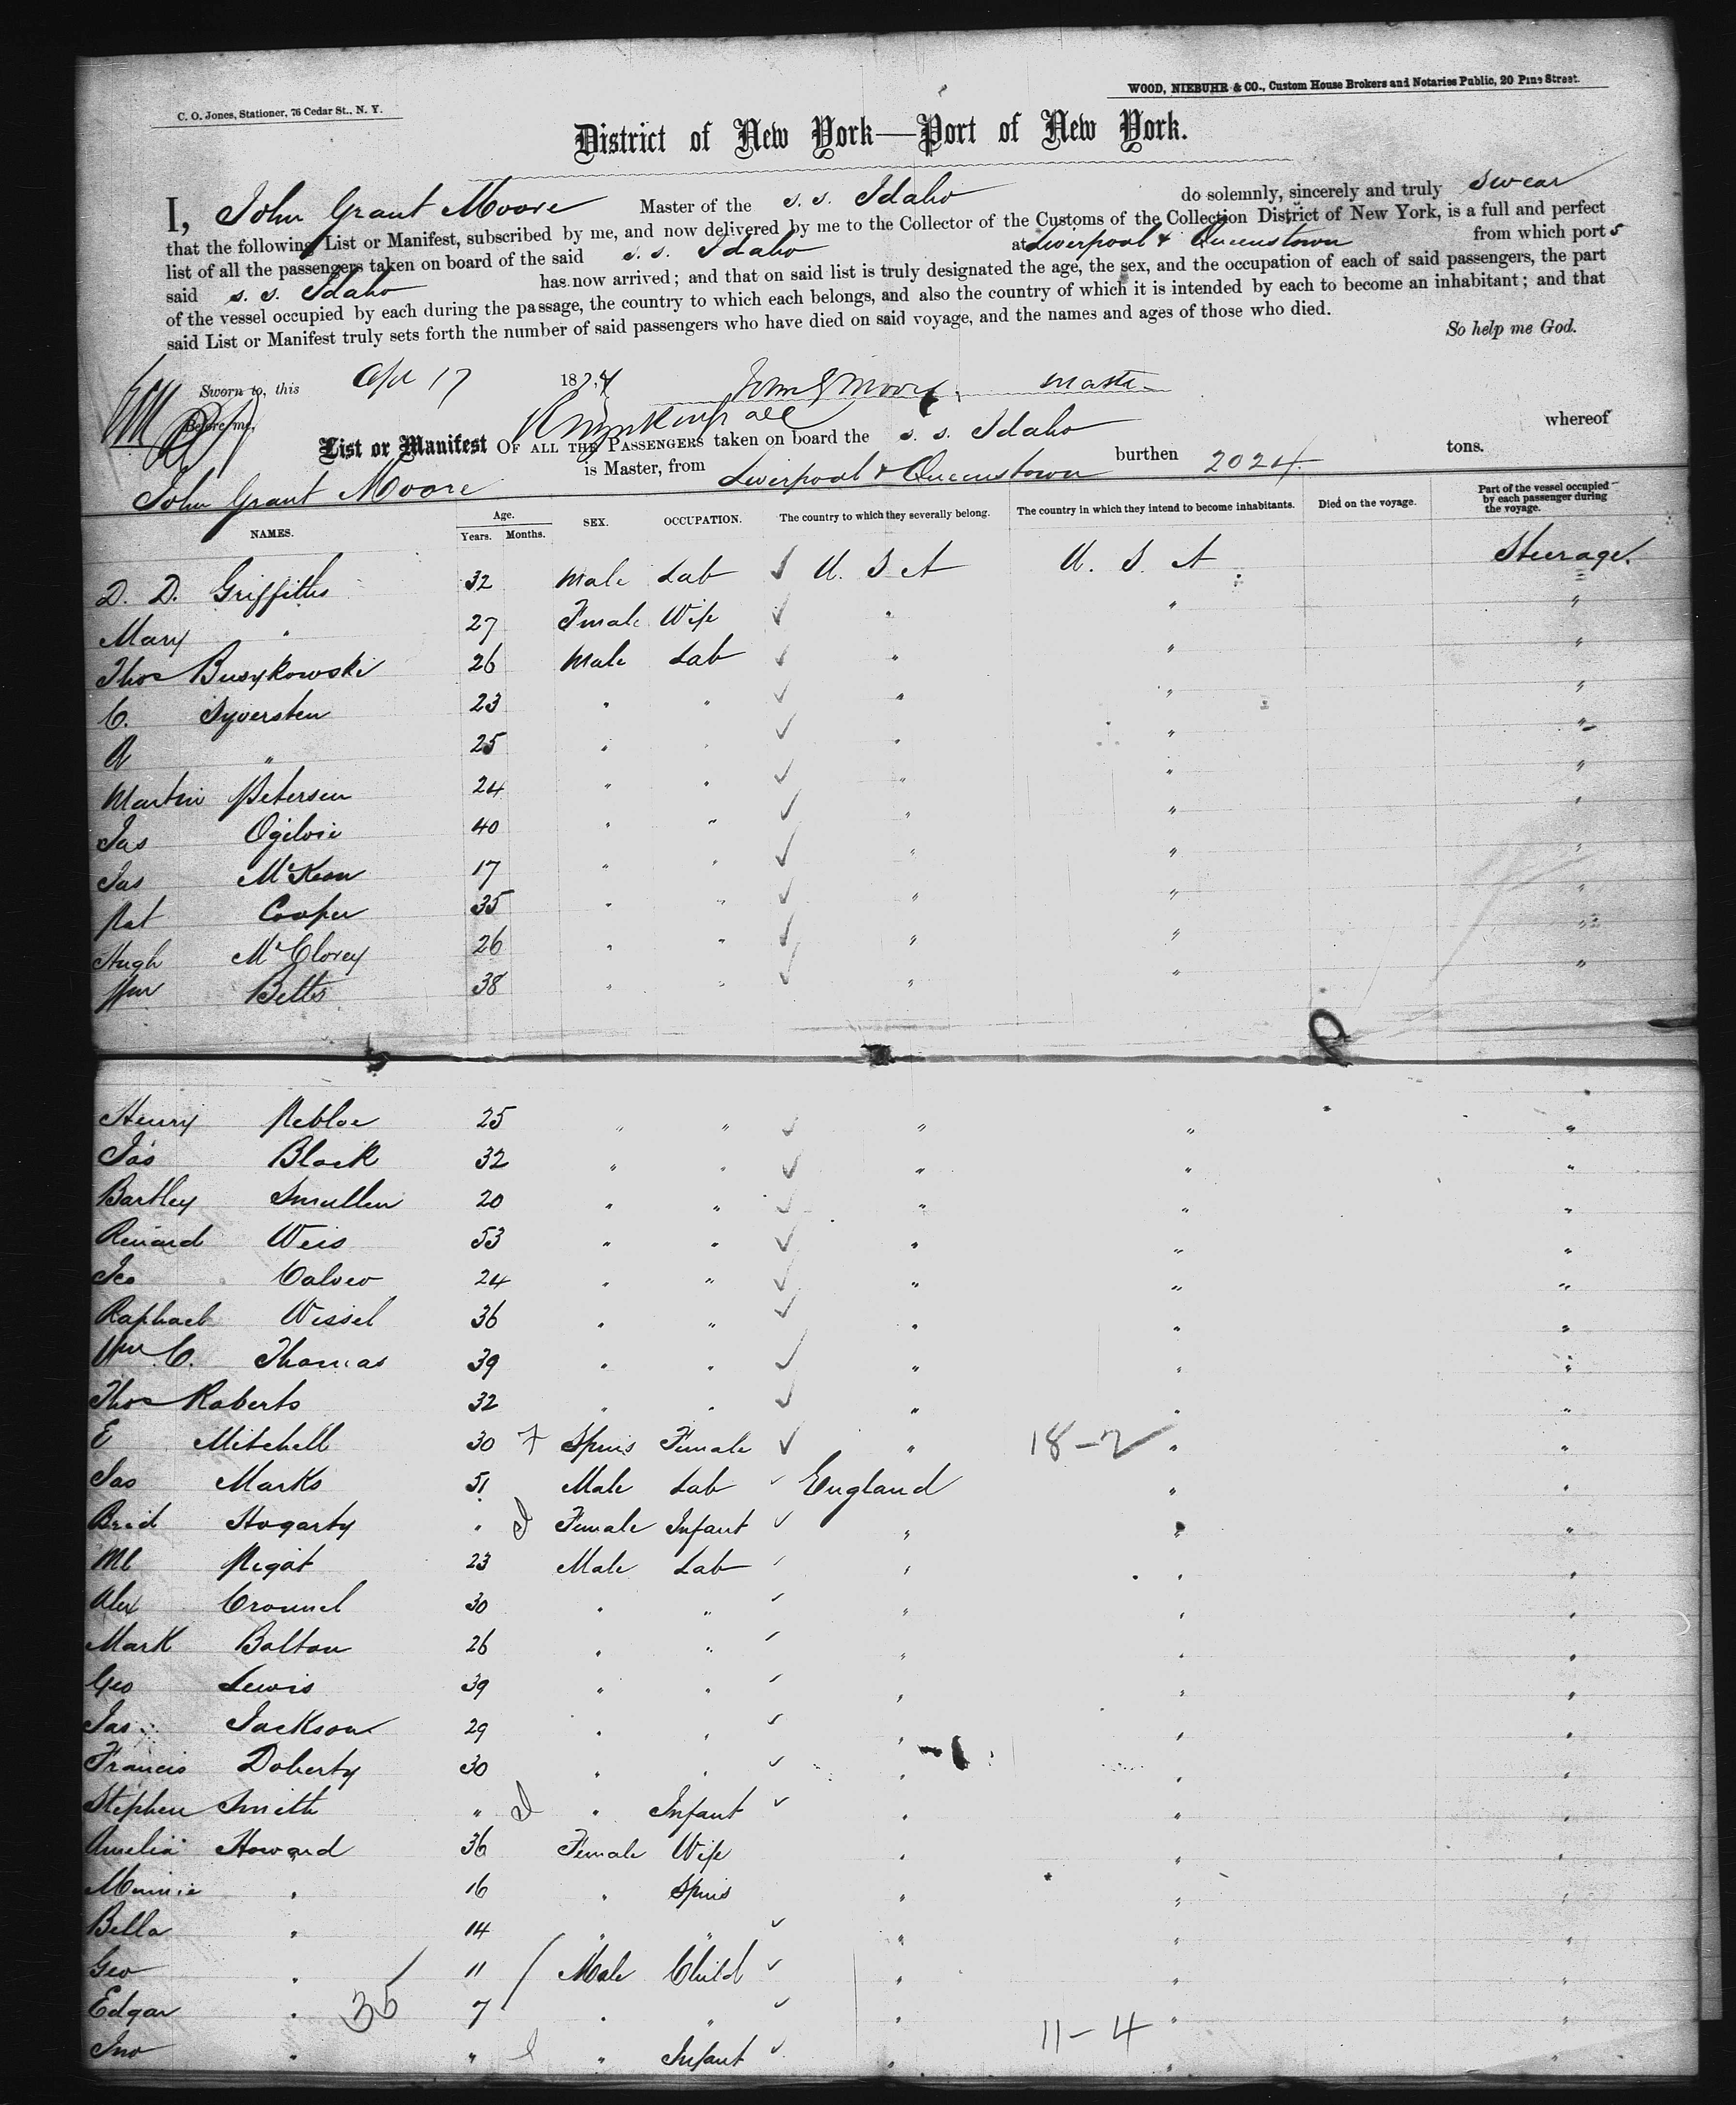 C. O. Jones, Stationer, 76 Cedar St., N. Y.
WOOD, NIEBUHR & CO., Custom House Brokers and Notaries Public, 20 Pine Street.
District of New York—Port of New York.
I, John Grant Moore Master of the s. s. Idaho do solemnly, sincerely and truly swear
that the following List or Manifest, subscribed by me, and now delivered by me to the Collector of the Customs of the Collection District of New York, is a full and perfect
list of all the passengers taken on board of the said s. s. Idaho at Liverpool & Queenstown from which port s
said s. s. Idaho has now arrived; and that on said list is truly designated the age, the sex, and the occupation of each of said passengers, the part
of the vessel occupied by each during the passage, the country to which each belongs, and also the country of which it is intended by each to become an inhabitant; and that
said List or Manifest truly sets forth the number of said passengers who have died on said voyage, and the names and ages of those who died.
So help me God.
Sworn to, this Apl 17 1874 John G Moore, Master
Before me,
List or Manifest OF ALL THE PASSENGERS taken on board the s. s. Idaho whereof
John Grant Moore is Master, from Liverpool & Queenstown burthen 2024 tons.
NAMES. Age. Years. Months. SEX. OCCUPATION. The country to which they severally belong. The country in which they intend to become inhabitants. Died on the voyage. Part of the vessel occupied by each passenger during the voyage.
D. D. Griffiths 32 Male Lab ✓ U. S A U. S. A Steerage.
Mary " 27 Female Wife ✓ " " "
Thos Busykowski 26 Male Lab ✓ " " "
C. Syversten 23 " " ✓ " " "
A " 25 " " ✓ " " "
Martin Petersen 24 " " ✓ " " "
Jas Ogilvie 40 " " ✓ " " "
Jas McKeon 17 " " ✓ " " "
Pat Cooper 35 " " ✓ " " "
Hugh McClorey 26 " " ✓ " " "
Wm Betts 38 " " ✓ " " "
Henry 25 " " ✓ " " "
Jas Black 32 " " ✓ " " "
Bartley Smullen 20 " " ✓ " " "
Weis 53 " " ✓ " " "
24 " " ✓ " " "
Raphael Wessel 36 " " ✓ " " "
Wm C. Thomas 39 " " ✓ " " "
Thos Roberts 32 " " ✓ " " "
E Mitchell 30 Spins Female ✓ " 18-2 " "
Jas Marks 51 Male Lab ✓ England " "
Brid Hogarty " Female Infant ✓ " " "
Ml 23 Male Lab ✓ " " "
Alex 30 " " ✓ " " "
Mark Bolton 26 " " ✓ " " "
Geo Lewis 39 " " ✓ " " "
Jas Jackson 29 " " ✓ " " "
Francis Doherty 30 " " ✓ " " "
Stephen Smith " " Infant ✓ " " "
Amelia Howard 36 Female Wife " " "
Minnie " 16 " Spins " " "
Bella " 14 " " ✓ " " "
Geo " 11 Male Child ✓ " " "
Edgar " 35 7 " " ✓ " " "
Jno " " " Infant ✓ " 11-4 " "